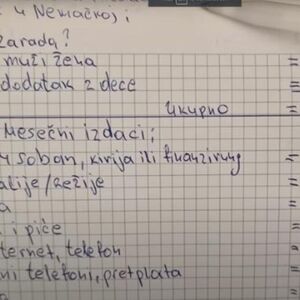 u Nemačkoj i
zarada?
muži žena =
dodatak 2 dece =
ukupno =
mesečni izdaci; 
4 soban, kirija ili finanzirung =
alije/režije =
a =
i piće =
ternet, telefon =
ni telefoni, pretplata =